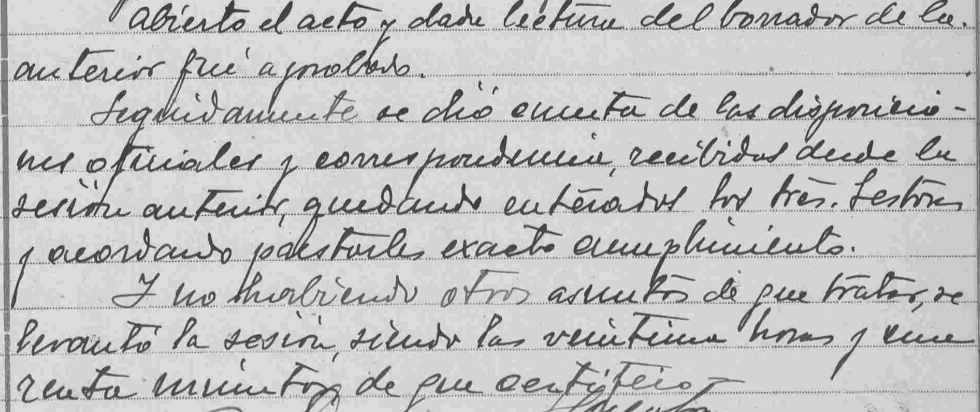 Abierto el acto y dada lectura del borrador de la
anterior fué aprobado.
Seguidamente se dió cuenta de las disposicio-
nes oficiales y correspondencia, recibidas desde la
sesión anterior, quedando enterados los Sres. Gestores
y acordando prestarles exacto cumplimiento.
Y no habiendo otros asuntos de que tratar, se
levantó la sesión, siendo las veintiuna horas y cua
renta minutos, de que certifico